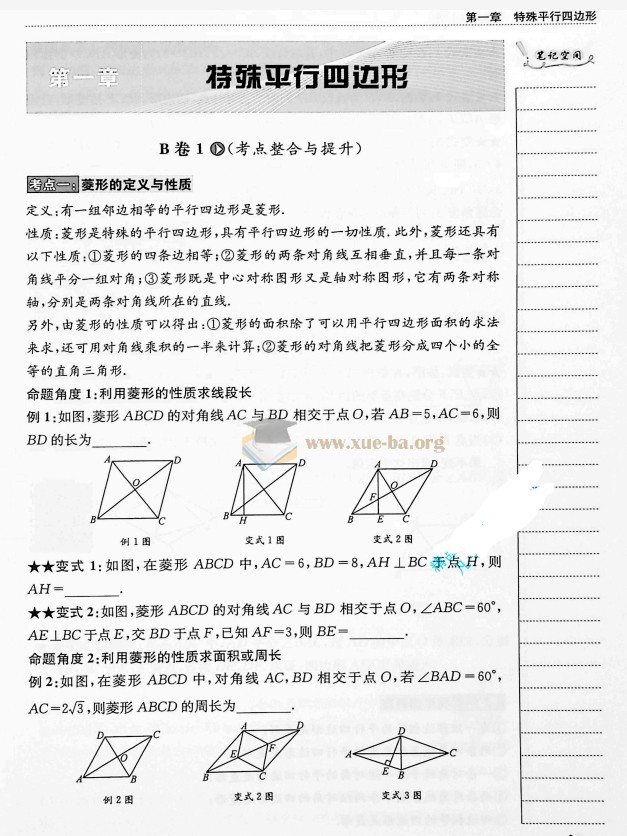 第一章 特殊平行四边形
笔记空间
第一章 特殊平行四边形
B卷1 (考点整合与提升)
考点一: 菱形的定义与性质
定义:有一组邻边相等的平行四边形是菱形.
性质:菱形是特殊的平行四边形,具有平行四边形的一切性质.此外,菱形还具有
以下性质:①菱形的四条边相等;②菱形的两条对角线互相垂直,并且每一条对
角线平分一组对角;③菱形既是中心对称图形又是轴对称图形,它有两条对称
轴,分别是两条对角线所在的直线.
另外,由菱形的性质可以得出:①菱形的面积除了可以用平行四边形面积的求法
来求,还可用对角线乘积的一半来计算;②菱形的对角线把菱形分成四个小的全
等的直角三角形.
命题角度1:利用菱形的性质求线段长
例1:如图,菱形ABCD的对角线AC与BD相交于点O,若AB=5,AC=6,则
BD的长为________.
www.xue-ba.org
A D O B C
A D B H C
A D O F B E C
例1图 变式1图 变式2图
★★变式1:如图,在菱形ABCD中,AC=6,BD=8,AH⊥BC于点H,则
AH=________.
★★变式2:如图,菱形ABCD的对角线AC与BD相交于点O,∠ABC=60°,
AE⊥BC于点E,交BD于点F,已知AF=3,则BE=________.
命题角度2:利用菱形的性质求面积或周长
例2:如图,在菱形ABCD中,对角线AC,BD相交于点O,若∠BAD=60°,
AC=2√3,则菱形ABCD的周长为________.
D C O A B
A D E F B C
D A C E B
例2图 变式2图 变式3图